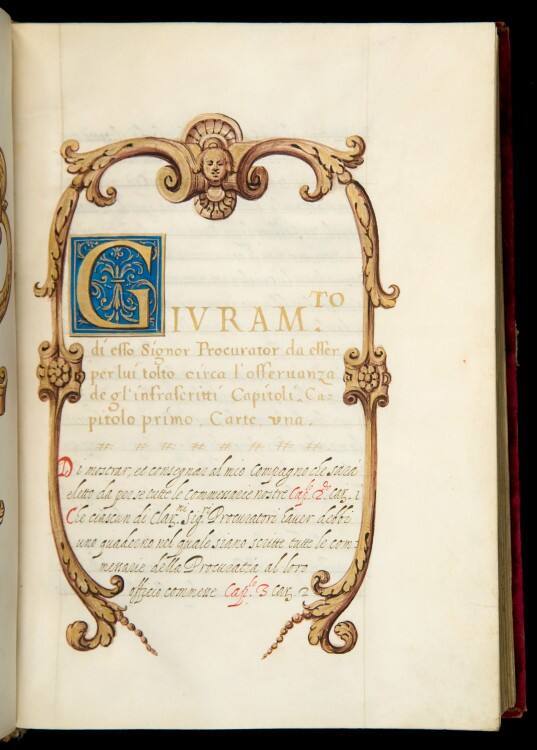 GIVRAM.TO
di esso Signor Procurator da esser
per lui tolto circa l'osseruanza
degl'infrascritti Capitoli. Ca-
pitolo primo. Carte vna.
Di mostrar, et consegnar al mio Compagno che sarà
eletto da per se tutte le commessarie nostre Cap.º 2.º Car. 1
Che ciascun di Clar.mi Sig.ri Procuratori hauer debbi
uno quaderno nel quale siano scritte tutte le com-
messarie della Procuratia al loro
officio commesse Cap.º 3 Car. 2